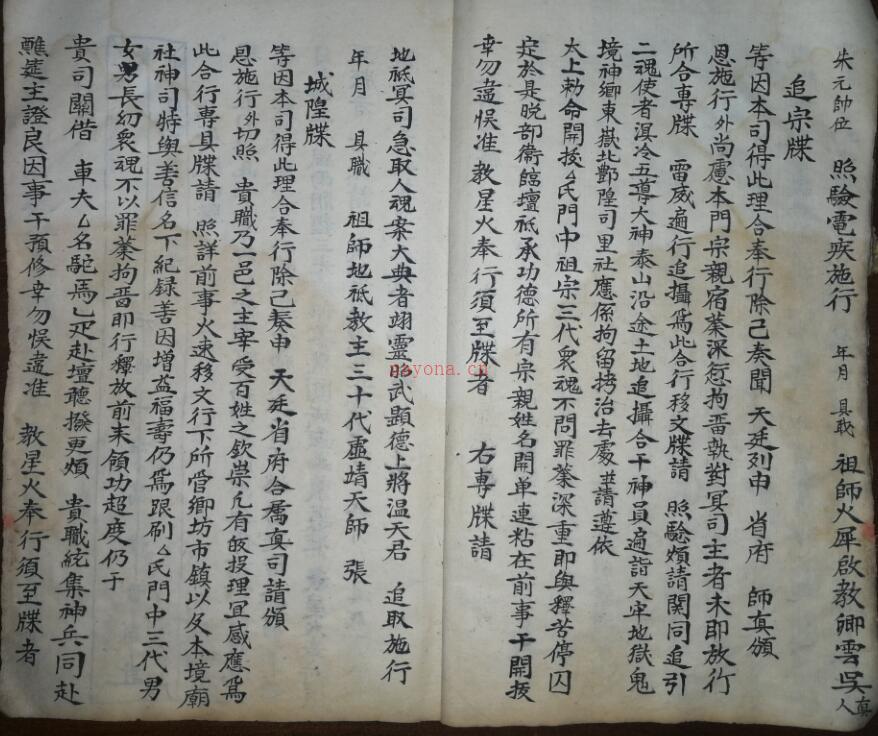 朱元帥位　照驗電疾施行　年月　具職　祖師火犀啟教卿雲吳真人
追宗牒
等因本司得此理合奉行除已奏聞　天廷列申　省府　師真頒
恩施行外尚慮本門宗親宿業深愆拘畱執對冥司主者未即放行
所合專牒　雷威遍行追攝爲此合行移文牒請　照驗煩請関同追引
二魂使者溟冷五導大神泰山沿途土地追攝合干神員遍詣天牢地獄鬼
境神鄉東嶽北酆隍司里社應係拘留拷治去處並請遵依
太上勅命開拔厶氏門中祖宗三代衆魂不問罪業深重即與釋苦停囚
定於是晚部衛臨壇祗承功德所有宗親姓名開单連粘在前事干開拔
幸勿違悮准　教星火奉行須至牒者　右專牒請
地祇冥司急取人魂案大典者翊靈昭武顯德上將温天君　追取施行
年月　具職　祖師地祇教主三十代虛靖天師　張
城隍牒
等因本司得此理合奉行除已奏申　天廷省府合屬真司請頒
恩施行外切照　貴職乃一邑之主宰受百姓之欽崇凡有皈投理宜感應爲
此合行專具牒請　照詳前事火速移文行下所管鄉坊市鎮以及本境廟
社神司特與善信名下紀録善因增益福壽仍爲跟刷厶氏門中三代男
女男長幼衆魂不以罪業拘畱即行釋放前來領功超度仍于
貴司關借　車夫厶名駝馬乙疋赴壇聽撥更煩　貴職統集神兵同赴
醮筵主證良因事干預修幸勿悮違准　教星火奉行須至牒者
nayona.cn